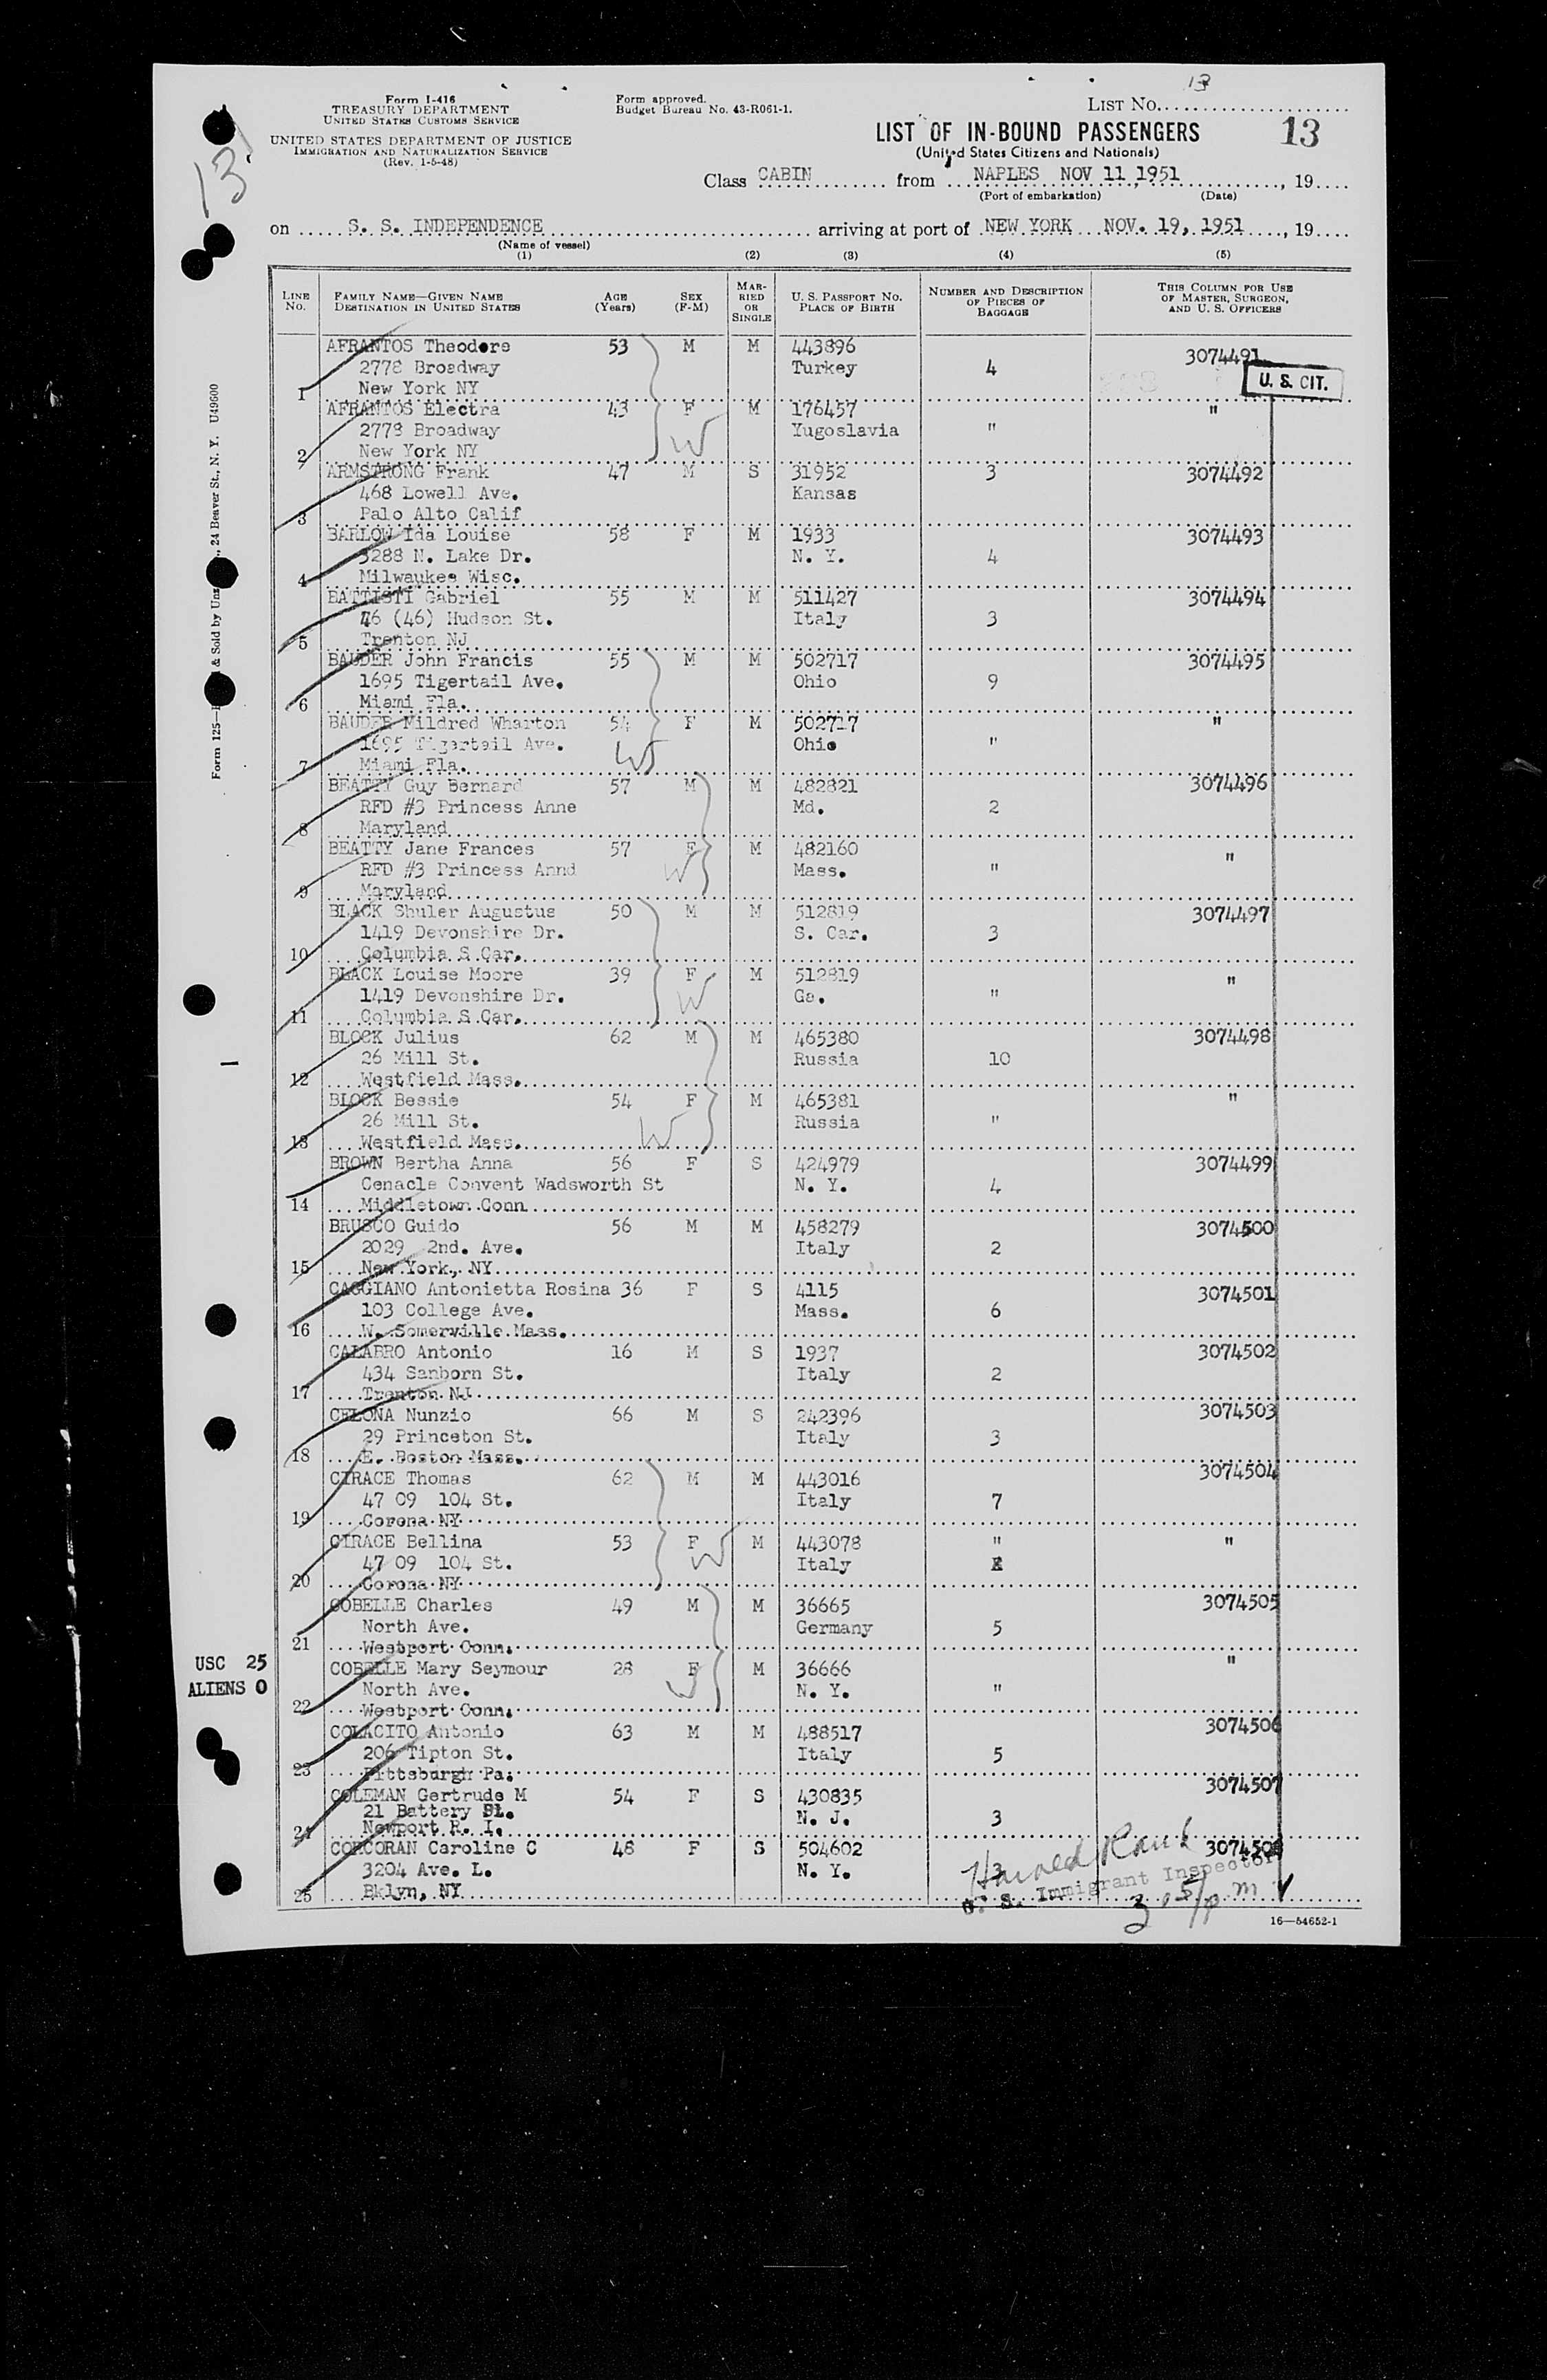 13
Form I-416
TREASURY DEPARTMENT
UNITED STATES CUSTOMS SERVICE
UNITED STATES DEPARTMENT OF JUSTICE
IMMIGRATION AND NATURALIZATION SERVICE
(Rev. 1-5-48)
Form approved.
Budget Bureau No. 43-R061-1.
LIST No.
13
LIST OF IN-BOUND PASSENGERS 13
(United States Citizens and Nationals)
Class CABIN from NAPLES NOV 11,1951, 19
(Port of embarkation) (Date)
on S. S. INDEPENDENCE arriving at port of NEW YORK NOV. 19, 1951, 19
(Name of vessel)
(1) (2) (3) (4) (5)
LINE No. FAMILY NAME—GIVEN NAME DESTINATION IN UNITED STATES AGE (Years) SEX (F-M) MARRIED OR SINGLE U. S. PASSPORT No. PLACE OF BIRTH NUMBER AND DESCRIPTION OF PIECES OF BAGGAGE THIS COLUMN FOR USE OF MASTER, SURGEON, AND U. S. OFFICERS
AFRANTOS Theodore 53 M M 443896 3074491
2778 Broadway Turkey 4 U. S. CIT.
1 New York NY
AFRANTOS Electra 43 F M 176457 "
2778 Broadway Yugoslavia "
2 New York NY W
ARMSTRONG Frank 47 M S 31952 3 3074492
468 Lowell Ave. Kansas
3 Palo Alto Calif
BARLOW Ida Louise 58 F M 1933 3074493
3288 N. Lake Dr. N. Y. 4
4 Milwaukee Wisc.
BATTISTI Gabriel 55 M M 511427 3074494
46 (46) Hudson St. Italy 3
5 Trenton NJ
BAUDER John Francis 55 M M 502717 3074495
1695 Tigertail Ave. Ohio 9
6 Miami Fla.
BAUDER Mildred Wharton 54 F M 502717 "
1695 Tigertail Ave. W Ohio "
7 Miami Fla.
BEATTY Guy Bernard 57 M M 482821 3074496
RFD #3 Princess Anne Md. 2
8 Maryland
BEATTY Jane Frances 57 F M 482160 "
RFD #3 Princess Annd W Mass. "
9 Maryland
BLACK Shuler Augustus 50 M M 512819 3074497
1419 Devonshire Dr. S. Car. 3
10 Columbia S Car.
BLACK Louise Moore 39 F M 512819 "
1419 Devonshire Dr. W Ga. "
11 Columbia S Car.
BLOCK Julius 62 M M 465380 3074498
26 Mill St. Russia 10
12 Westfield Mass.
BLOCK Bessie 54 F M 465381 "
26 Mill St. W Russia "
13 Westfield Mass.
BROWN Bertha Anna 56 F S 424979 3074499
Cenacle Convent Wadsworth St N. Y. 4
14 Middletown Conn
BRUSCO Guido 56 M M 458279 3074500
2029 2nd. Ave. Italy 2
15 New York, NY
CAGGIANO Antonietta Rosina 36 F S 4115 3074501
103 College Ave. Mass. 6
16 W. Somerville Mass.
CALABRO Antonio 16 M S 1937 3074502
434 Sanborn St. Italy 2
17 Trenton NJ
CELONA Nunzio 66 M S 242396 3074503
29 Princeton St. Italy 3
18 E. Boston Mass.
CIRACE Thomas 62 M M 443016 3074504
47 09 104 St. Italy 7
19 Corona NY
CIRACE Bellina 53 F M 443078 " "
47 09 104 St. W Italy
20 Corona NY
COBELLE Charles 49 M M 36665 3074505
North Ave. Germany 5
21 Westport Conn.
COBELLE Mary Seymour 28 F M 36666 "
North Ave. W N. Y. "
22 Westport Conn.
COLACITO Antonio 63 M M 488517 3074506
206 Tipton St. Italy 5
23 Pittsburgh Pa.
COLEMAN Gertrude M 54 F S 430835 3074507
21 Battery St. N. J. 3
24 Newport R. I.
CORCORAN Caroline C 48 F S 504602 3074508
3204 Ave. L. N. Y. 3
25 Bklyn, NY
Harold
U. S. Immigrant Inspector
16—54652-1
USC 25
ALIENS 0
Form 125— & Sold by , 24 Beaver St., N. Y. U49600